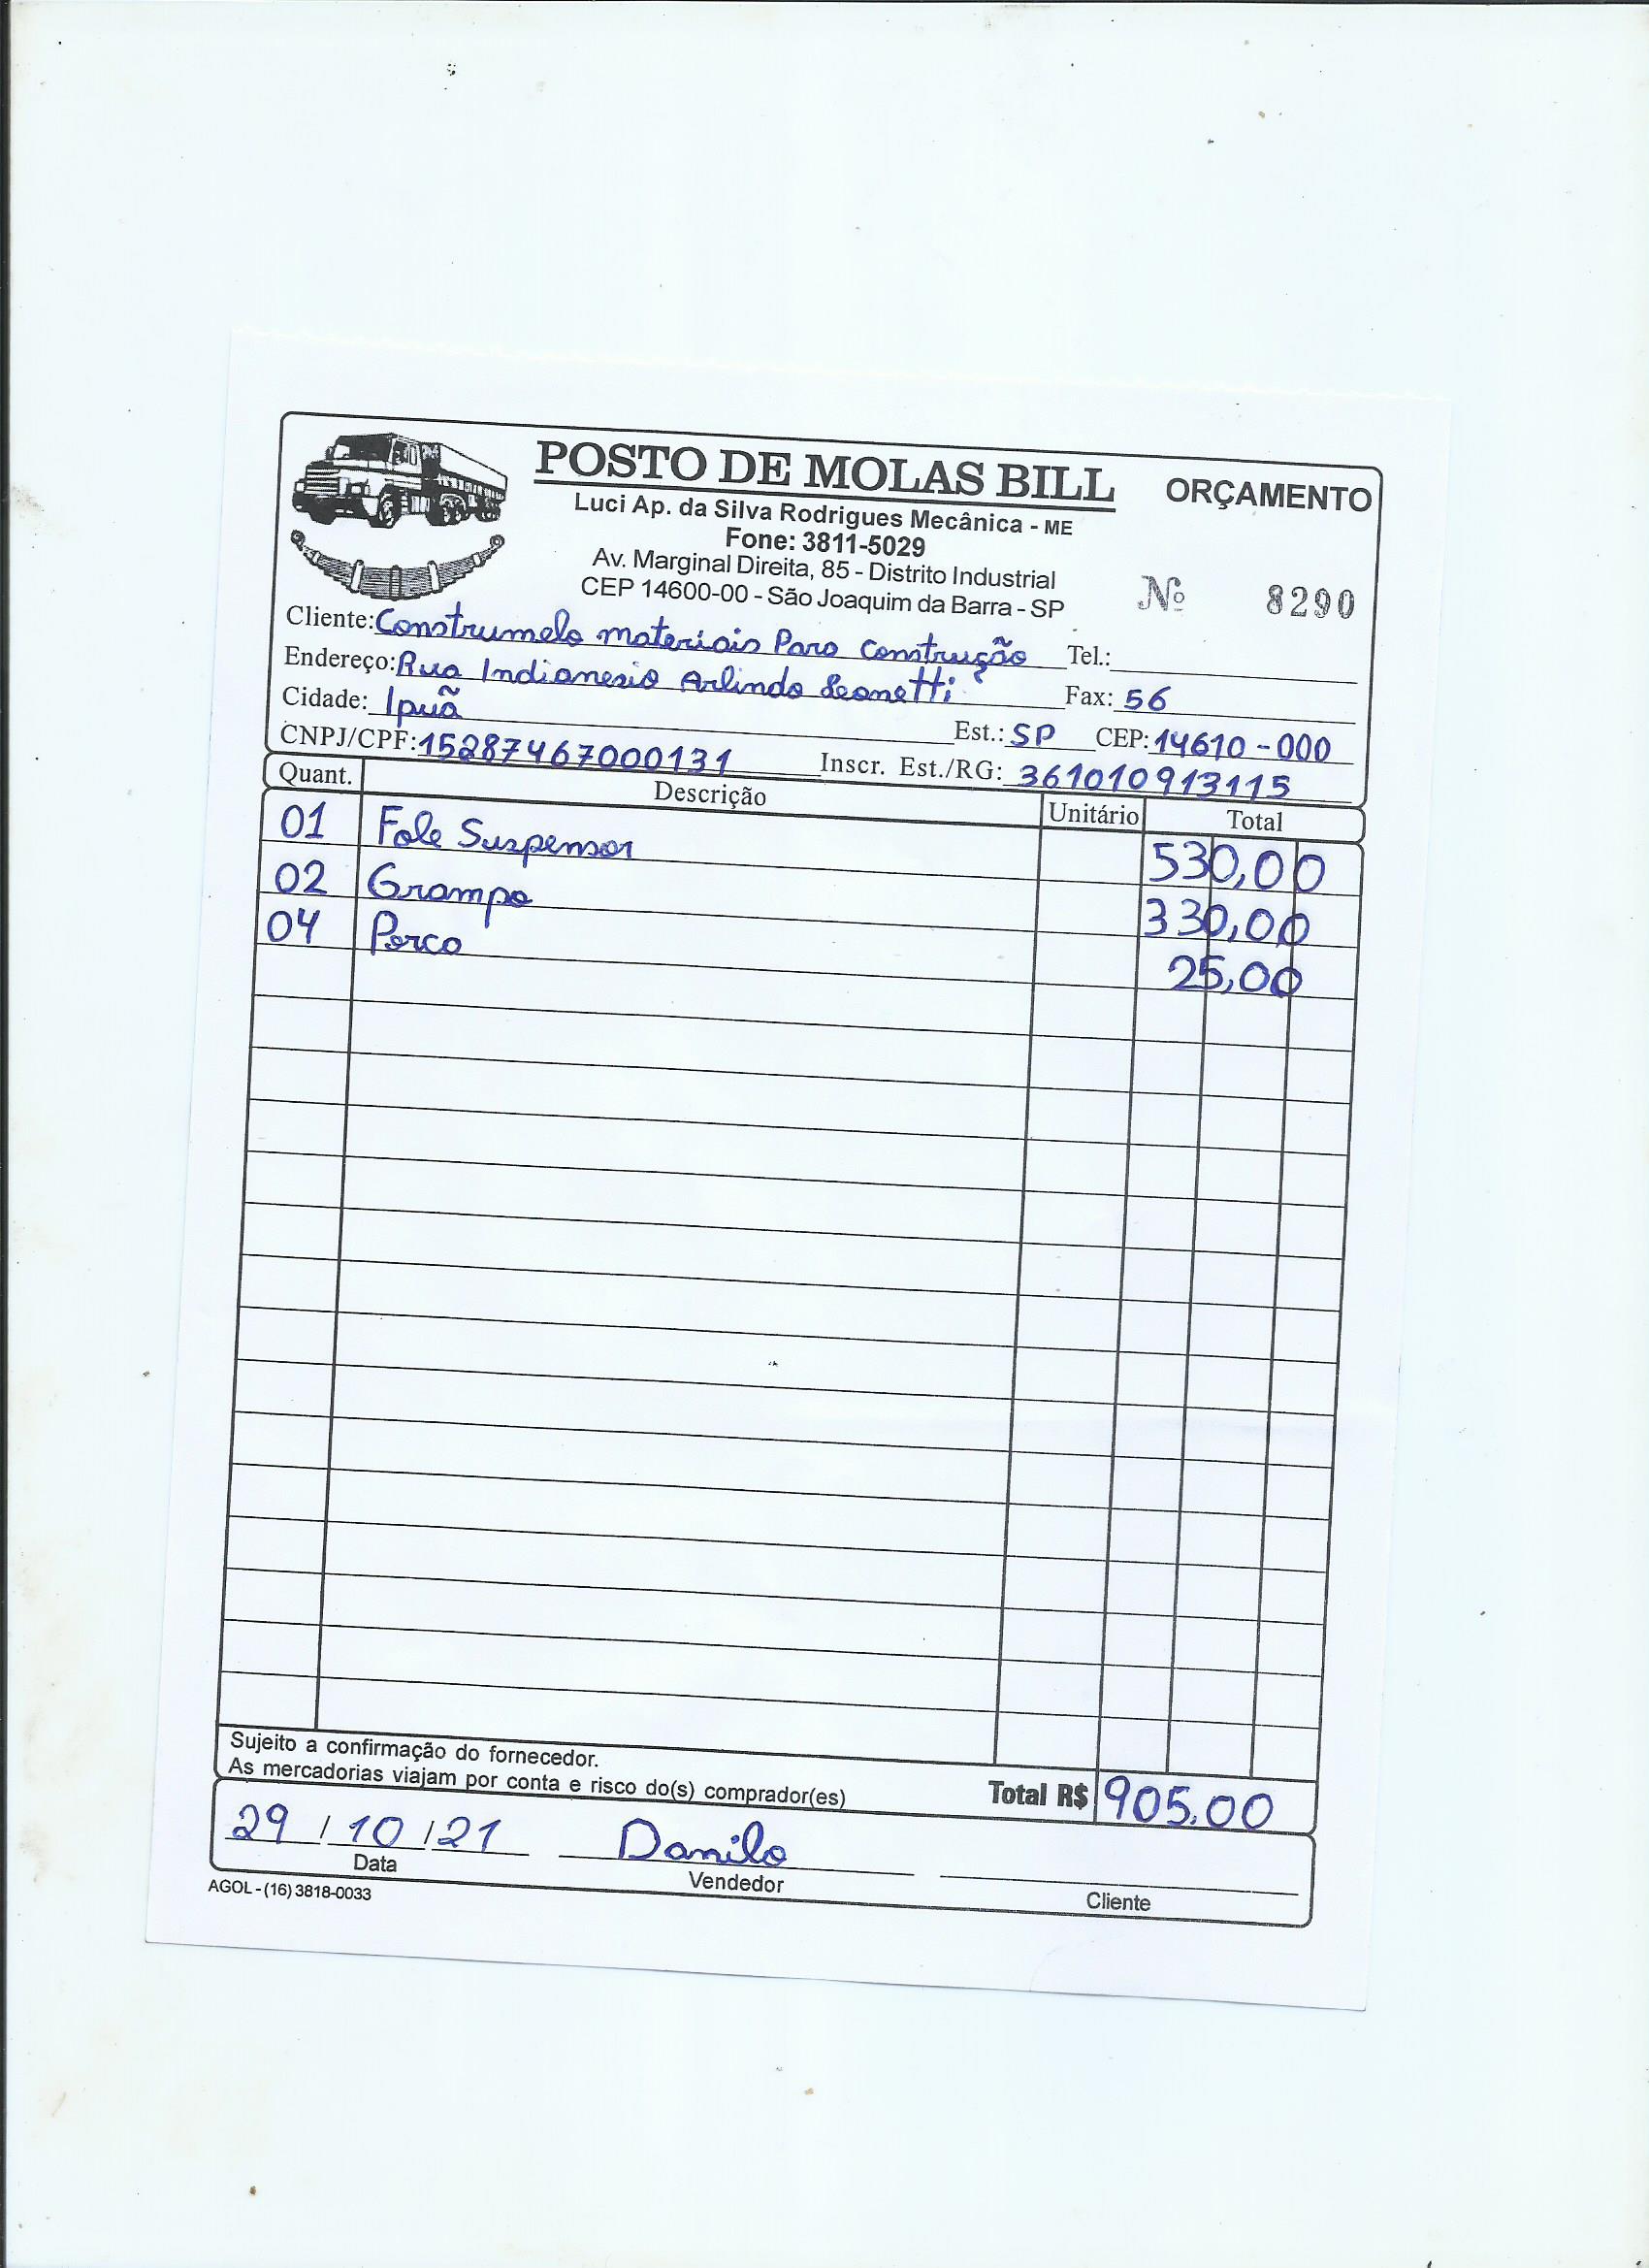 POSTO DE MOLAS BILL ORÇAMENTO
Luci Ap. da Silva Rodrigues Mecânica - ME
Fone: 3811-5029
Av. Marginal Direita, 85 - Distrito Industrial
CEP 14600-00 - São Joaquim da Barra - SP
Nº 8290
Cliente: Construmelo materiais Para Construção Tel.:
Endereço: Rua Indianesio Arlindo Leonetti Fax: 56
Cidade: Ipuã Est.: SP CEP: 14610-000
CNPJ/CPF: 15287467000131 Inscr. Est./RG: 361010913115
Quant. Descrição Unitário Total
01 Fole Suspensor 530,00
02 Grampo 330,00
04 Porca 25,00
Sujeito a confirmação do fornecedor.
As mercadorias viajam por conta e risco do(s) comprador(es) Total R$ 905,00
29 / 10 / 21 Danilo
Data Vendedor Cliente
AGOL - (16) 3818-0033